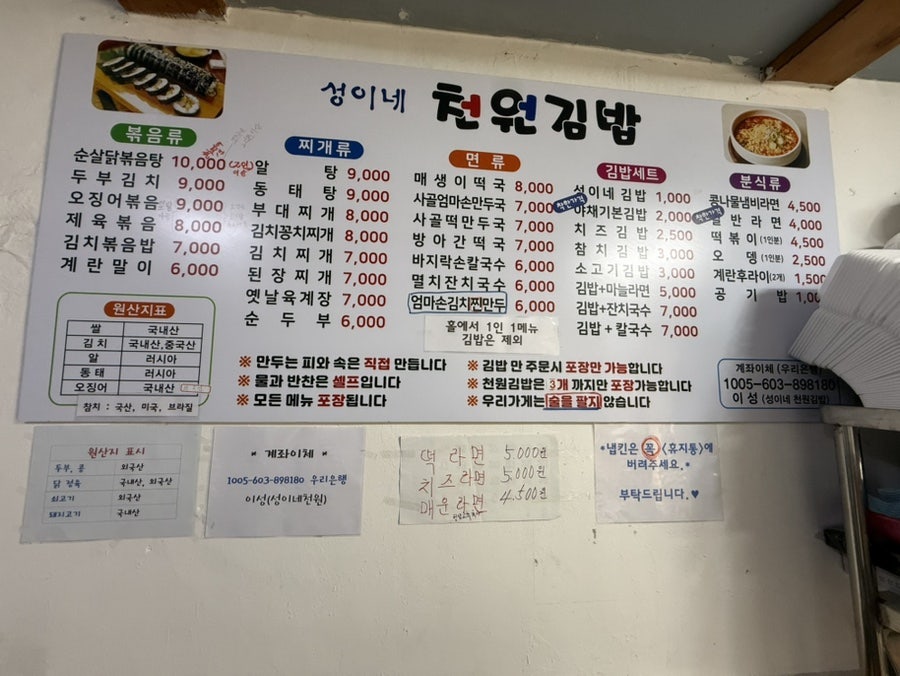 성이네 천원김밥
볶음류
순살닭볶음탕 10,000
두부김치 9,000
오징어볶음 9,000
제육볶음 8,000
김치볶음밥 7,000
계란말이 6,000
원산지표
쌀 국내산
김치 국내산,중국산
알 러시아
동태 러시아
오징어 국내산
참치 : 국산, 미국, 브라질
찌개류
알탕 9,000
동태탕 9,000
부대찌개 8,000
김치꽁치찌개 8,000
김치찌개 7,000
된장찌개 7,000
옛날육계장 7,000
순두부 6,000
면류
매생이떡국 8,000
사골엄마손만두국 7,000
사골떡만두국 7,000
방아간떡국 7,000
바지락손칼국수 6,000
멸치잔치국수 6,000
엄마손김치찐만두 6,000
홀에서 1인 1메뉴
김밥은 제외
김밥세트
성이네김밥 1,000
착한가격
야채기본김밥 2,000
치즈김밥 2,500
참치김밥 3,000
소고기김밥 3,000
김밥+마늘라면 5,000
김밥+잔치국수 7,000
김밥+칼국수 7,000
분식류
콩나물냄비라면 4,500
착한가격
일반라면 4,000
떡볶이(1인분) 4,500
오뎅(1인분) 2,500
계란후라이(2개) 1,500
공기밥 1,00
※ 만두는 피와 속은 직접 만듭니다
※ 물과 반찬은 셀프입니다
※ 모든 메뉴 포장됩니다
※ 김밥 만 주문시 포장만 가능합니다
※ 천원김밥은 3개 까지만 포장가능합니다
※ 우리가게는 술을 팔지 않습니다
계좌이체 (우리은행)
1005-603-898180
이 성 (성이네 천원김밥)
원산지 표시
두부, 콩 외국산
닭 정육 국내산, 외국산
쇠고기 외국산
돼지고기 국내산
* 계좌이체 *
1005-603-898180 우리은행
이성(성이네천원)
떡라면 5,000원
치즈라면 5,000원
매운라면 4,500원
*냅킨은 꼭 <휴지통>에
버려주세요.*
부탁드립니다.♥